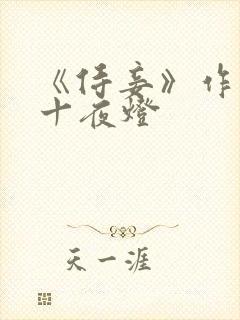 《侍妾》作
十夜燈
天一涯